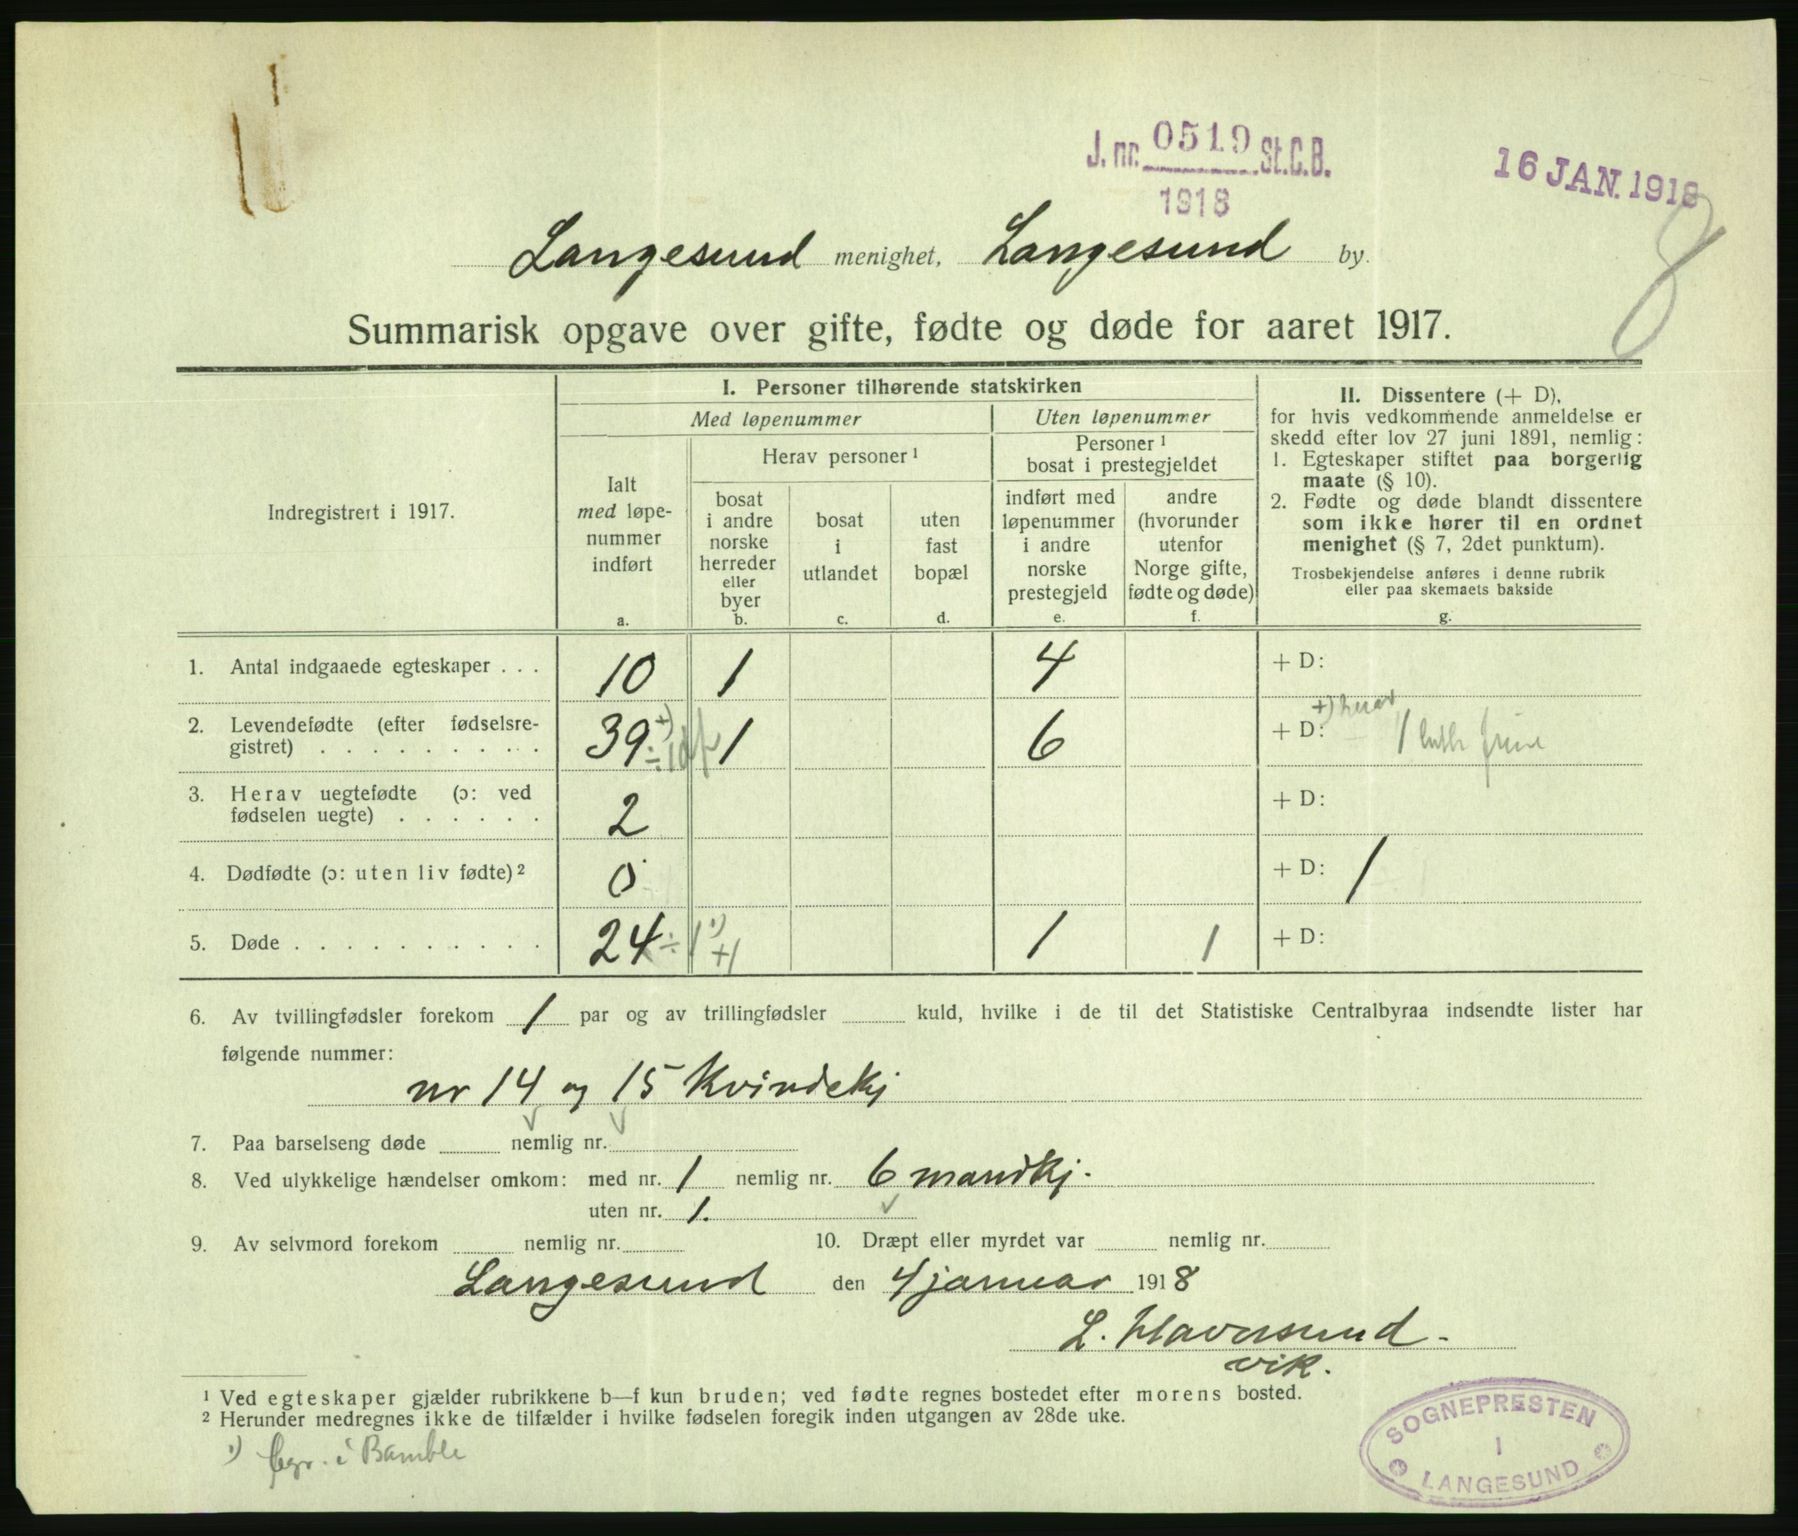 J. nr. 0519 St.C.B.
1918
16 JAN. 1918
8
Langesund menighet, Langesund by.
Summarisk opgave over gifte, fødte og døde for aaret 1917.
Indregistrert i 1917.
I. Personer tilhørende statskirken
Med løpenummer
Uten løpenummer
Ialt
med løpe-
nummer
indført
a.
Herav personer ¹
bosat
i andre
norske
herreder
eller
byer
b.
bosat
i
utlandet
c.
uten
fast
bopæl
d.
Personer ¹
bosat i prestegjeldet
indført med
løpenummer
i andre
norske
prestegjeld
e.
andre
(hvorunder
utenfor
Norge gifte,
fødte og døde)
f.
II. Dissentere (+ D),
for hvis vedkommende anmeldelse er
skedd efter lov 27 juni 1891, nemlig:
1. Egteskaper stiftet paa borgerlig
maate (§ 10).
2. Fødte og døde blandt dissentere
som ikke hører til en ordnet
menighet (§ 7, 2det punktum).
Trosbekjendelse anføres i denne rubrik
eller paa skemaets bakside
g.
1. Antal indgaaede egteskaper . . . 10 1 4 + D:
+) herav
2. Levendefødte (efter fødselsre-
gistret) . . . . . . . . . 39 +) ÷ 1 1 6 + D: 1
3. Herav uegtefødte (ɔ: ved
fødselen uegte) . . . . . . 2 + D:
4. Dødfødte (ɔ: uten liv fødte) ² 0 + D: 1
5. Døde . . . . . . . . . . 24 ÷ 1 ¹) +1 1 1 + D:
6. Av tvillingfødsler forekom 1 par og av trillingfødsler kuld, hvilke i de til det Statistiske Centralbyraa indsendte lister har
følgende nummer:
nr 14 og 15 Kvindekj
7. Paa barselseng døde nemlig nr.
8. Ved ulykkelige hændelser omkom: med nr. 1 nemlig nr. 6 mandkj.
uten nr. 1.
9. Av selvmord forekom nemlig nr. 10. Dræpt eller myrdet var nemlig nr.
Langesund den 4 januar 1918
L. Haversund.
vik.
¹ Ved egteskaper gjælder rubrikkene b—f kun bruden; ved fødte regnes bostedet efter morens bosted.
² Herunder medregnes ikke de tilfælder i hvilke fødselen foregik inden utgangen av 28de uke.
¹) begr. i Bamble
SOGNEPRESTEN
I
LANGESUND